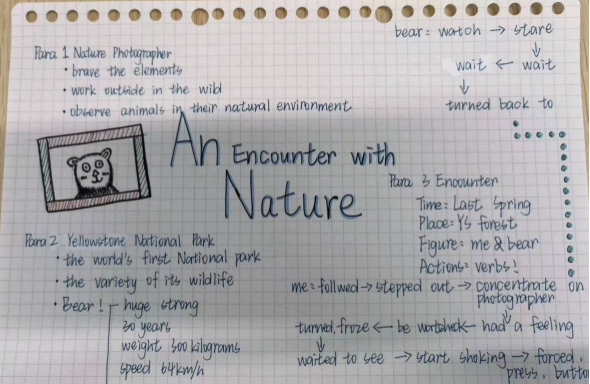 Para 1 Nature Photographer
• brave the elements
• work outside in the wild
• observe animals in their natural environment
bear: watch → stare
↓
wait ← wait
↓
turned back to
An Encounter with
Nature
Para 2 Yellowstone National Park
• the world's first National park
• the variety of its wildlife
• Bear! huge strong
30 years
weight 300 kilograms
speed 64km/h
Para 3 Encounter
Time: Last Spring
Place: YS forest
Figure: me & bear
Actions: verbs!
me: follwed → stepped out → concentrate on
photographer
↓
turned, froze ← be ← had a feeling
↓
waited to see → start shaking → forced,
press, button